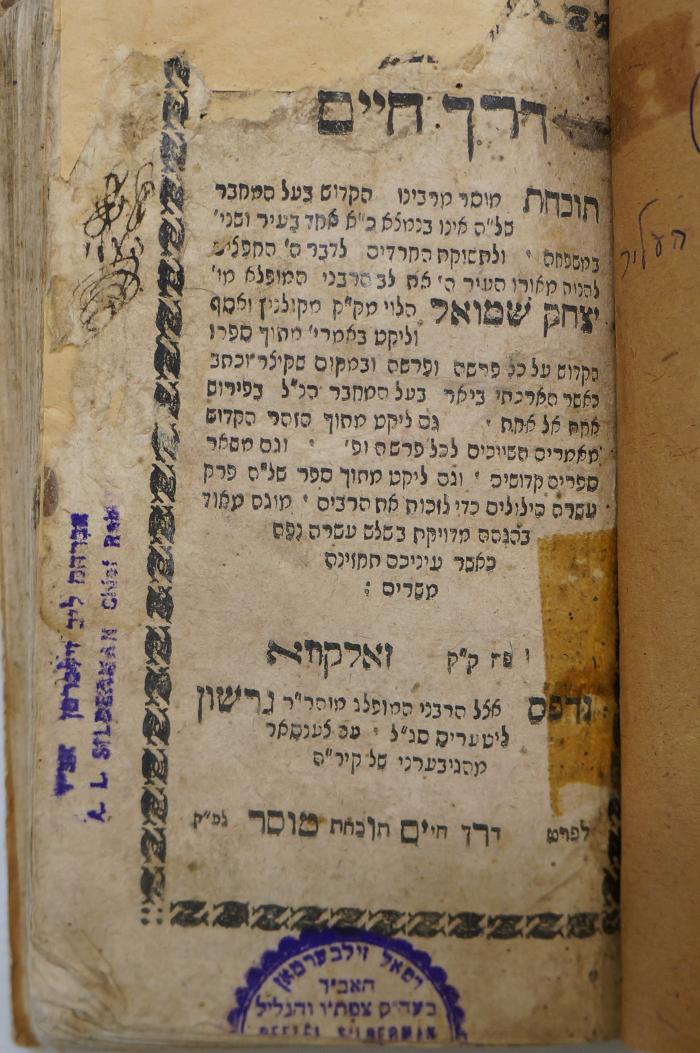 דרך חיים
תוכחת מוסר מרבינו הקדוש בעל המחבר
של"ה אינו בנמלא כ"א אחד בעיר ושני'
במשפחה ולתשוקת החרדים לדבר ה' החפלים
להנות מאורו העיר ה' את לב הרבני המופלא מו'
יצחק שמואל הלוי מק"ק מקולנין ואסף
וליקט באמרי' מתוך ספרו
הקדוש על כל פרשה ופרשה ובמקום שקיצר וכתב
כאשר הארכתי ביאר בעל המחבר הנ"ל בפירוש
אחת אל אחת גם ליקט מתוך הזהר הקדוש
מאמרים השייכים לכל פרשה ופ' וגם משאר
ספרים קדושים וגם ליקט מתוך ספר של"ה פרק
עשרה הילולים כדי לזכות את הרבים מוגה מאוד
בהגהה מדויקת בשלש עשרה נפה
כאשר עיניכם תחזינה
משרים :
פה ק"ק זאלקווא
נדפס אצל הרבני המופלג מוהר"ר גרשון
ליטערים סג"ל עם לענטאר
מהגיבערני של קיר"ה
לפרט דרך חיים תוכחת מוסר לפ"ק
העליר
אברהם ליב זילברמן אב"ד
A. L. SILBERMAN Chief Rabbi
רפאל זילבערמאן
האב"ד
בעה"ק צפת"ו והגליל
REFEÉL SILBERMAN